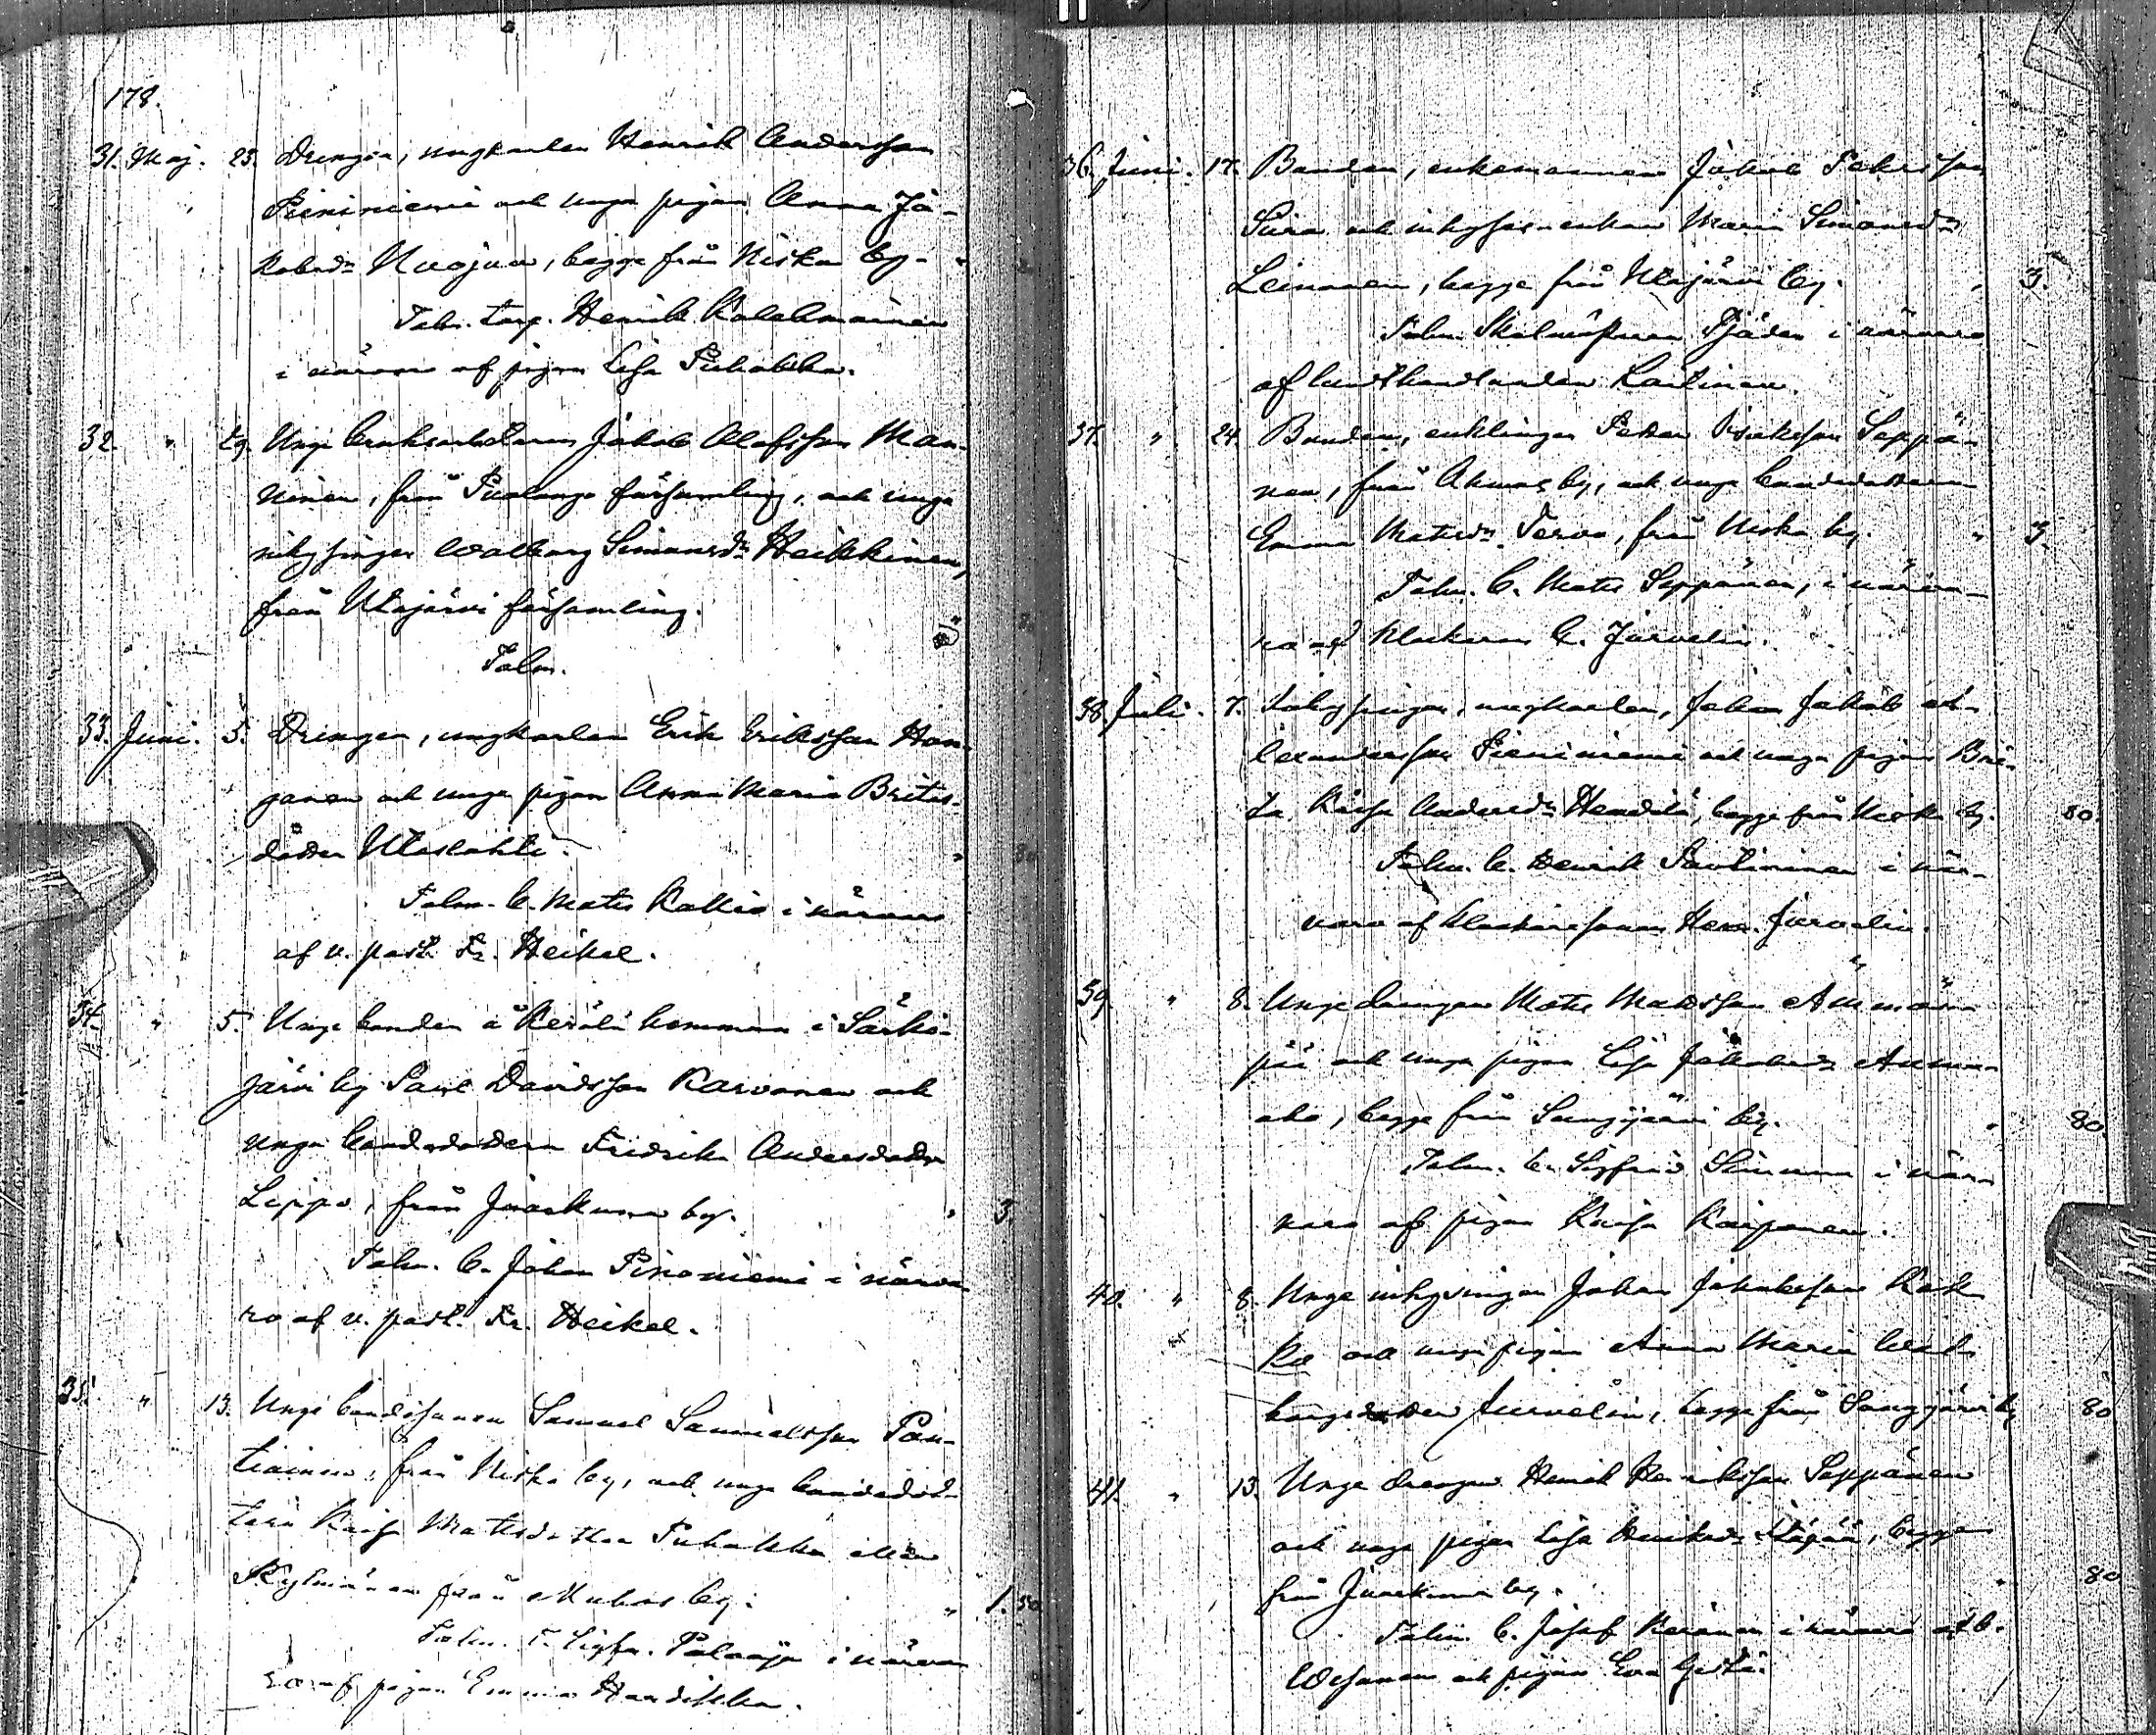 178.
31. Maj. 23. Drengen, ungkarlen Henrik Andersson
Pieniniemi och unga pigan Anna Ja-
kobsdr Nuojua, begge från Niska by.
Talm. torp. Henrik Kalekmainen
i närvaro af pigan Lisa Puhakka.
32. " 29. Unge Olofsson Man-
ninen, från Puolango församling, och unga
inhysingen Walborg Simonsdr Heikkinen,
från Utajärvi församling.
Talm.
33. Juni. 5. Drengen, ungkarlen Erik Eriksson Hon-
ganen och unga pigan Anna Maria Brites-
dotter Utaslahti.
Talm. b. Mats Kallio i närvaro
af v. past. Fr. Heikel.
34. " 5. Unge bonden å Kerälä hemman i Särki-
järvi by Paul Davidsson Karvonen och
unga bondedottern Fredrika Andersdotter
Leppo, från Juorkuna by. " 3.
Talm. b. Johan Pinoniemi i närva-
ro af v. past. Fr. Heikel.
35. " 13. Unge bondesonen Samuel Samuelsson Pon-
tiainen, från Niska by, och unga bondedot-
tern Kaisa Matsdotter Puhakka eller
Kylmänen från Muhos by. " 1. 50
Talm. Sigfr. Palooja i närva-
ro af pigan Emma Handikka.
36. Juni. 17. Bonden, enkemannen Jakob Petersson
Siira och inhyses enkan Maria Simonsdr
Leinonen, begge från Utajärvi by. " 3.
Talm. Skolmästaren Tjäder i närvaro
af landthandlanden Lantinen.
37. " 24. Bonden, enklingen Petter Seppä-
nen, från Ahmas by, och unga bondedottern
Emma Matsdr Tervo, från Niska by. " 3.
Talm. b. Mats Seppänen, i närva-
ro af klockaren C. Jurvelin.
38. Juli. 7. Inhysingen, ungkarlen, Johan Jakob Al-
lexandersson Pieniniemi och unga pigan Bri-
ta Kaisa Andersdr Hendilä, begge från Niska by. 80.
Talm. b. Henrik Pontiainen i när-
varo af klockaresonen Herm. Jurvelin.
39. " 8. Unge drengen Mats Matsson Ämmän-
pää och unga pigan Lisa Jakobsdr
aho, begge från Sangijärvi by. " 80.
Talm. b. Sigfrid i när-
varo af pigan Kaisa Karpanen.
40. " 8. Unge inhysingen Johan Jakobsson Kok-
ko och unga pigan Anna Maria Wal-
borgsdotter Jurvelin, begge från Sangijärvi by 80
41. " 13. Unge drengen Henrik Henriksson Seppänen
och unga pigan Lisa Henriksdr , begge
från Juorkuna by. " 80
Talm. b. Josef Keränen i närvaro af b.
Wesanen och pigan Eva